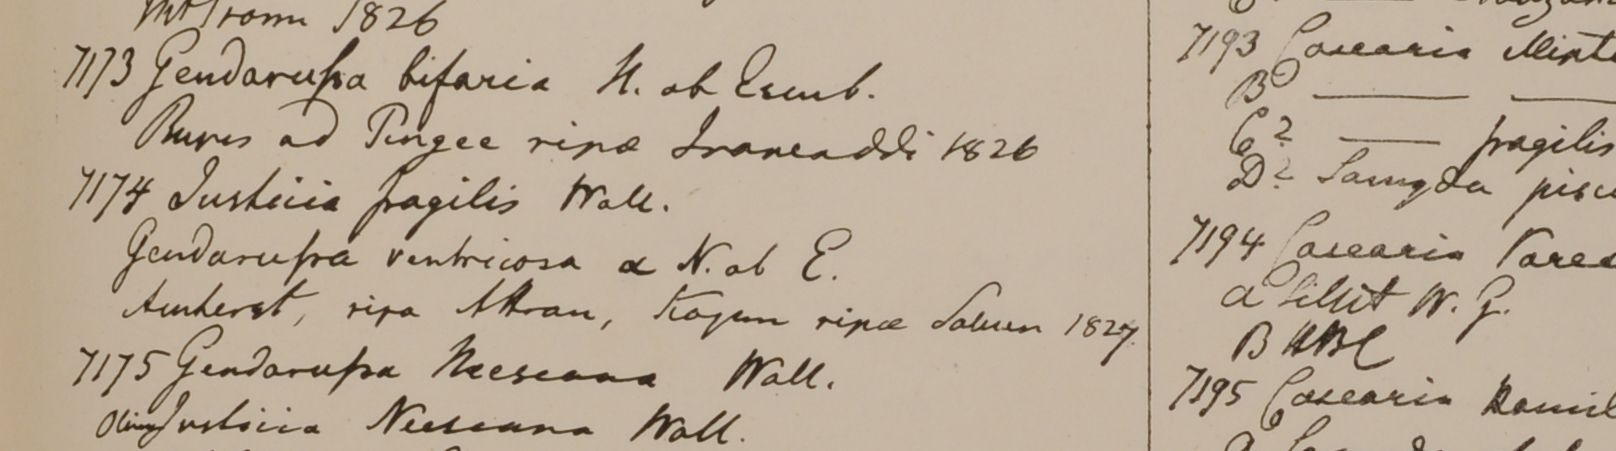 Mt Prome 1826
7173 Gendarussa bifaria N. ab Esenb.
Burms ad Pingee ripæ Irawaddi 1826
7174 Justicia fragilis Wall.
Gendarussa ventricosa α N. ab E.
Amherst, ripa Attran, Kogun ripæ Saluen 1827.
7175 Gendarussa Neeseana Wall.
Olim Justicia Neeseana Wall.
7193 Casearia
B
C? fragilis
D? Samyda pisc
7194 Casearia Vares
a Sillet W. G.
B HBC
7195 Casearia Hamil